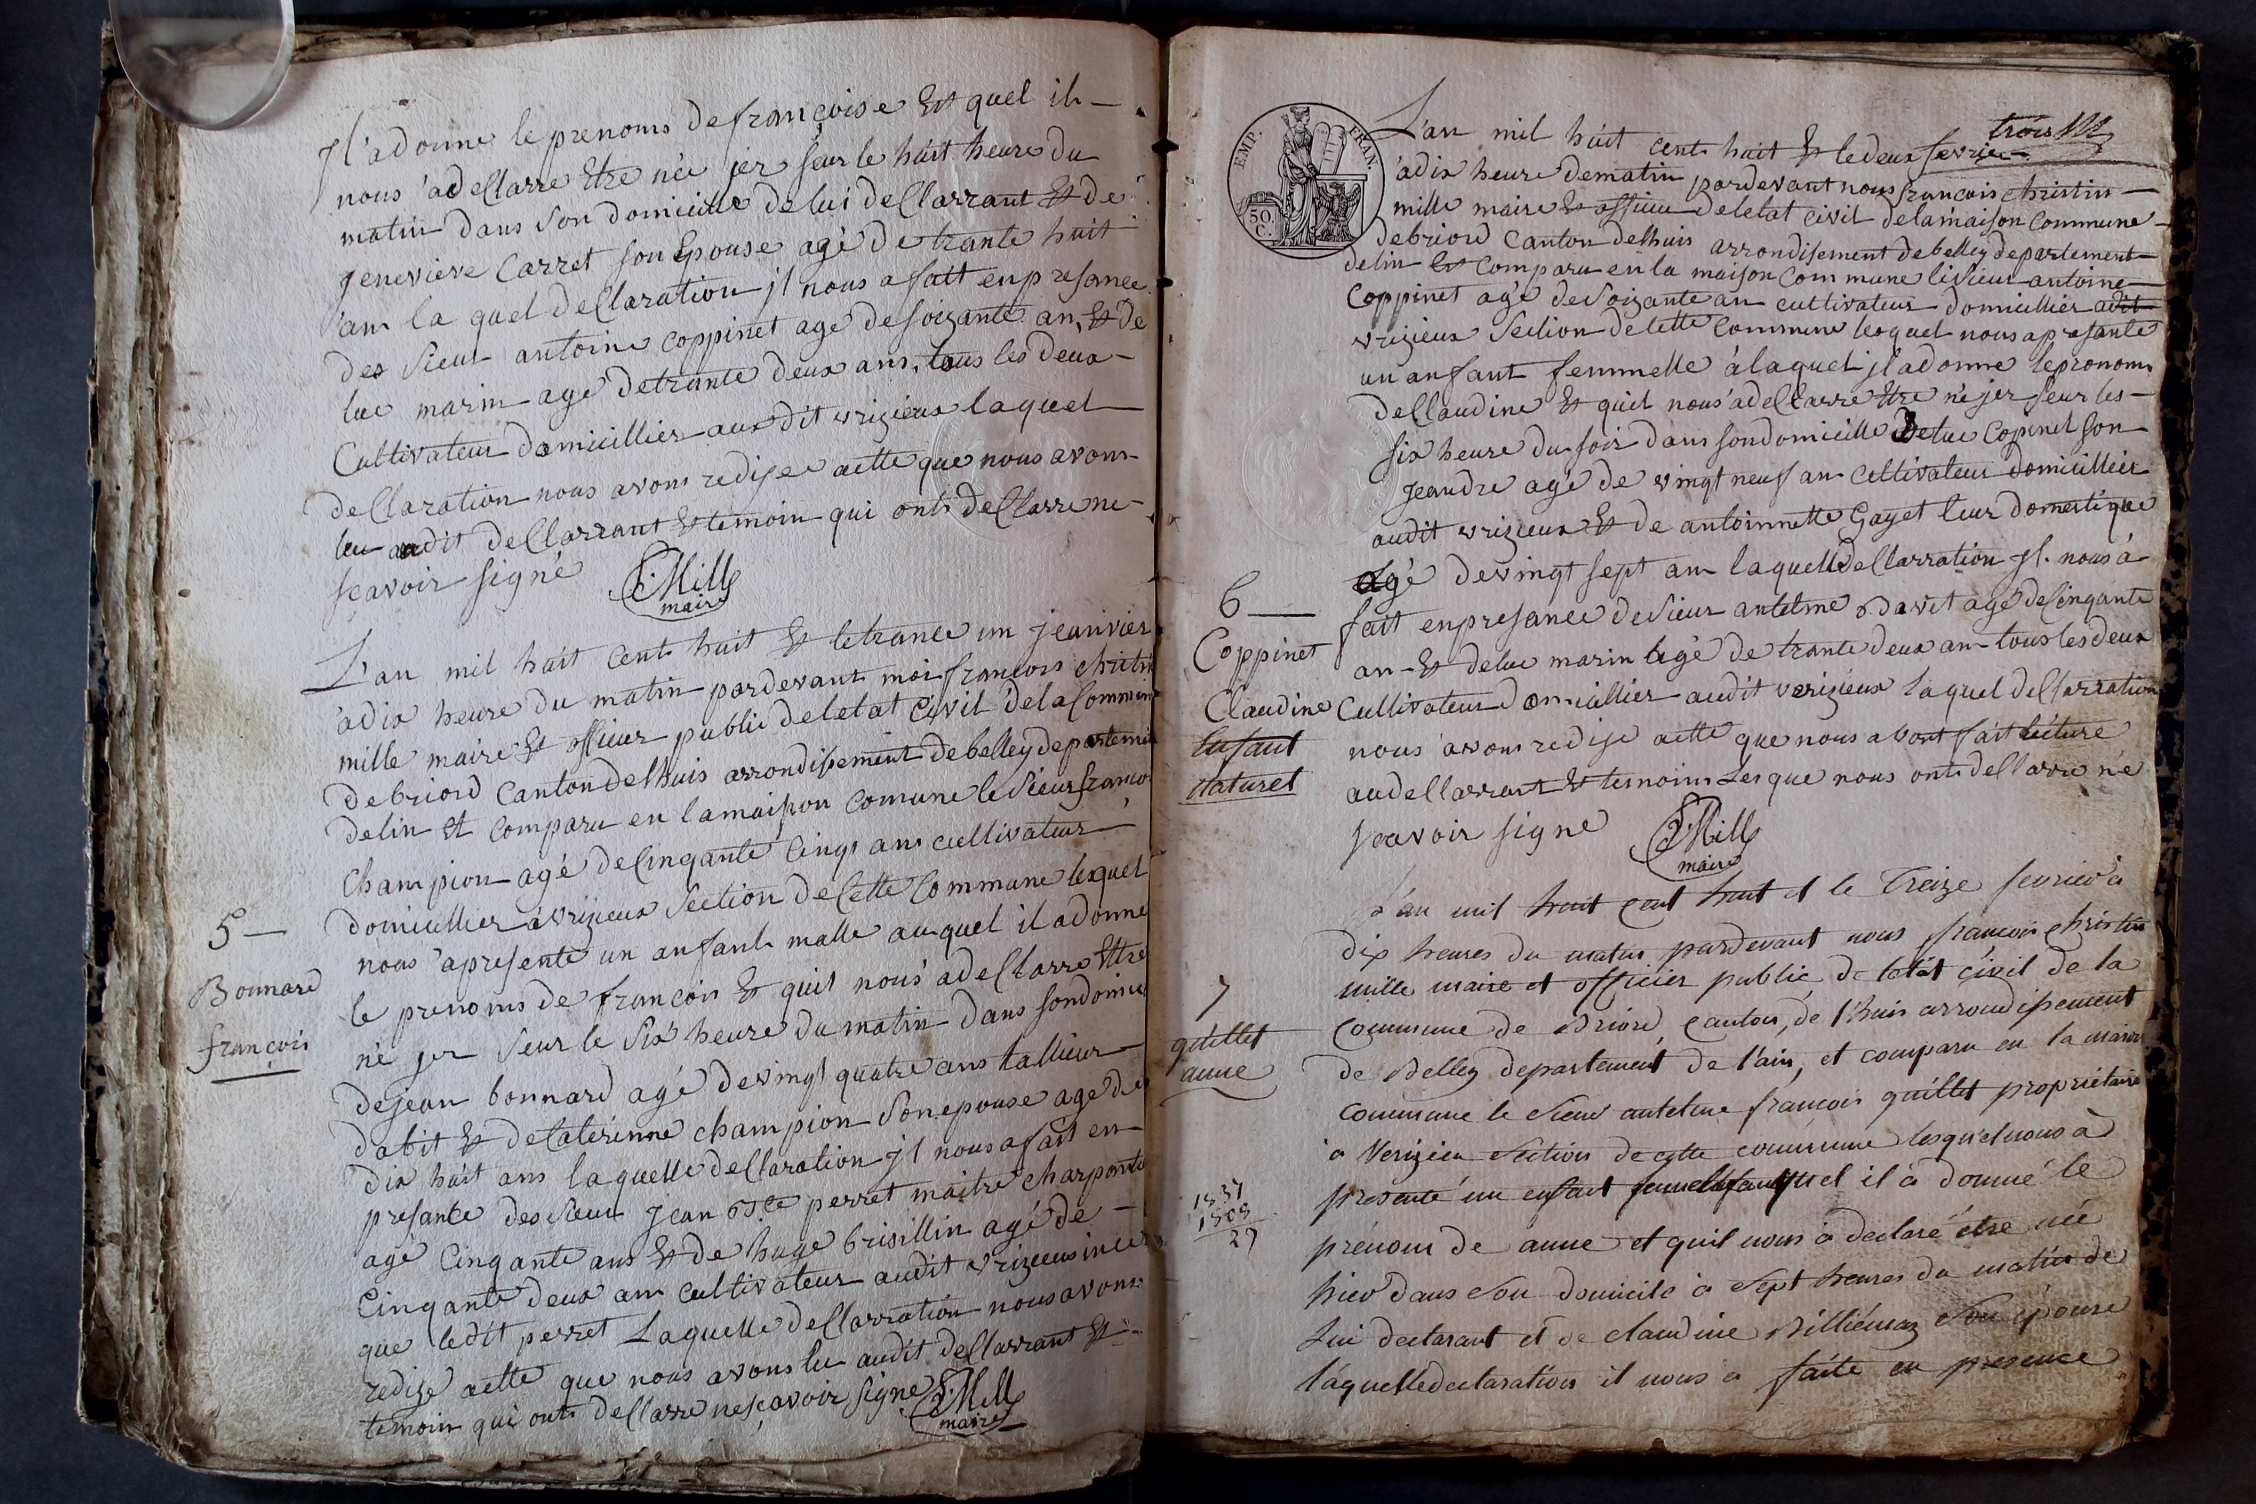 Il a donne le prenoms de françoise Et quel il
nous a declarre Etre née jer seur le huit heure du
matin dans son domicille de lui declarrant Et de
genevieve Carret son Epouse agé de trante huit
am la quel declaration il nous a fait en presance
des sieur antoine Coppinet age de soizante an, Et de
luc marin age de trante deux ans, tous les deux
Cultivateur domicillier audit vrizieux laquel
declaration nous avons redise actte que nous avons
leu audit declarrant Et temoin qui onts declarre ne
scavoir signé
f. Mille
maire
L'an mil huit cents huit Et le trante un jeanvier
a dix heure du matin pardevant moi françois christin
mille maire Et officier public de letat civil de la Commune
de briord Canton de lhuis arrondisement de belley departement
de lin Et comparu en la maison comune le sieur françois
Champion agé de Cinqante Cinqs ans cultivateur
domicillier a vrizieux Section de Cette Commune lequel
5
nous a presenté un anfant malle au quel il a donné
Bonnard
françois
le prenoms de françois Et quil nous a declarre Ettre
né jer seur le six heure du matin dans son domicile
de jean bonnard agé de vingt quatre ans tallieur
dabit Et de Catérinne champion son epouse age de
dix huit ans laquelle declaration il nous a fait en
presance des sieur jean Bte perret maitre charpentie
agé Cinqante ans Et de huge brisillin agé de
Cinqante deux am cultivateur audit vrizieux
que ledit perret Laquelle declarration nous avons
redize actte que nous avons lu audit declarrant Et
temoin qui onts declarre ne scavoir signe f. Mille
maire
trois
EMP. FRAN.
50. C.
L'an mil huit cents huit Et le deux fevrier
a dix heure de matin pardevant nous françois christin
mille maire Et officier de letat civil de la maison Commune
de briord Canton de lhuis arrondisement de belley departement
de lin Et comparu en la maison Commune le sieur antoine
Coppinet agé de soizante an cultivateur domicillier adit
vrizieux Section de cette Commune lesquel nous a presanté
un anfant femmelle a laquel il a donne le prenom
de Claudine Et quil nous a declarre Ettre né jer seur les
six heure du soir dans son domicille de luc Copinet son
jeandre agé de vingt neuf an Celtivateur domicillier
audit vrizieux Et de antoinnette Gayet leur domestique
agé de vingt sept am laquelle declarration il nous a
6
fait en presance de sieur antelme davet agé de Cinqante
Coppinet
Claudine
Enfant
naturel
an Et de luc marin agé de trante deux an tous les deux
Cultivateur domicillier audit verizieux laquel declarration
nous avons redise actte que nous avont fait lecture
au declarrant Et temoins Lesque nous onts declarre né
scavoir signe
f. Mille
maire
L'an mil huit cent huit et le treize fevrier à
dix heures du matin pardevant nous françois christin
mille maire et officier public de l'etat civil de la
7
quillet
anne
commune de Briord canton de l'huis arrondissement
de Belley departement de l'ain, et comparu en la maison
commune le Sieur antelme françois quillet propriétaire
à Verizieu Section de cette commune lesquel nous à
1837
1808
29
presenté un enfant femelle auquel il à donné le
prénom de anne et quil nous à declaré être née
hier dans son domicile à Sept heures du matin de
lui declarant et de claudine Billiémaz son épouse
laquelle declaration il nous a faite en presence